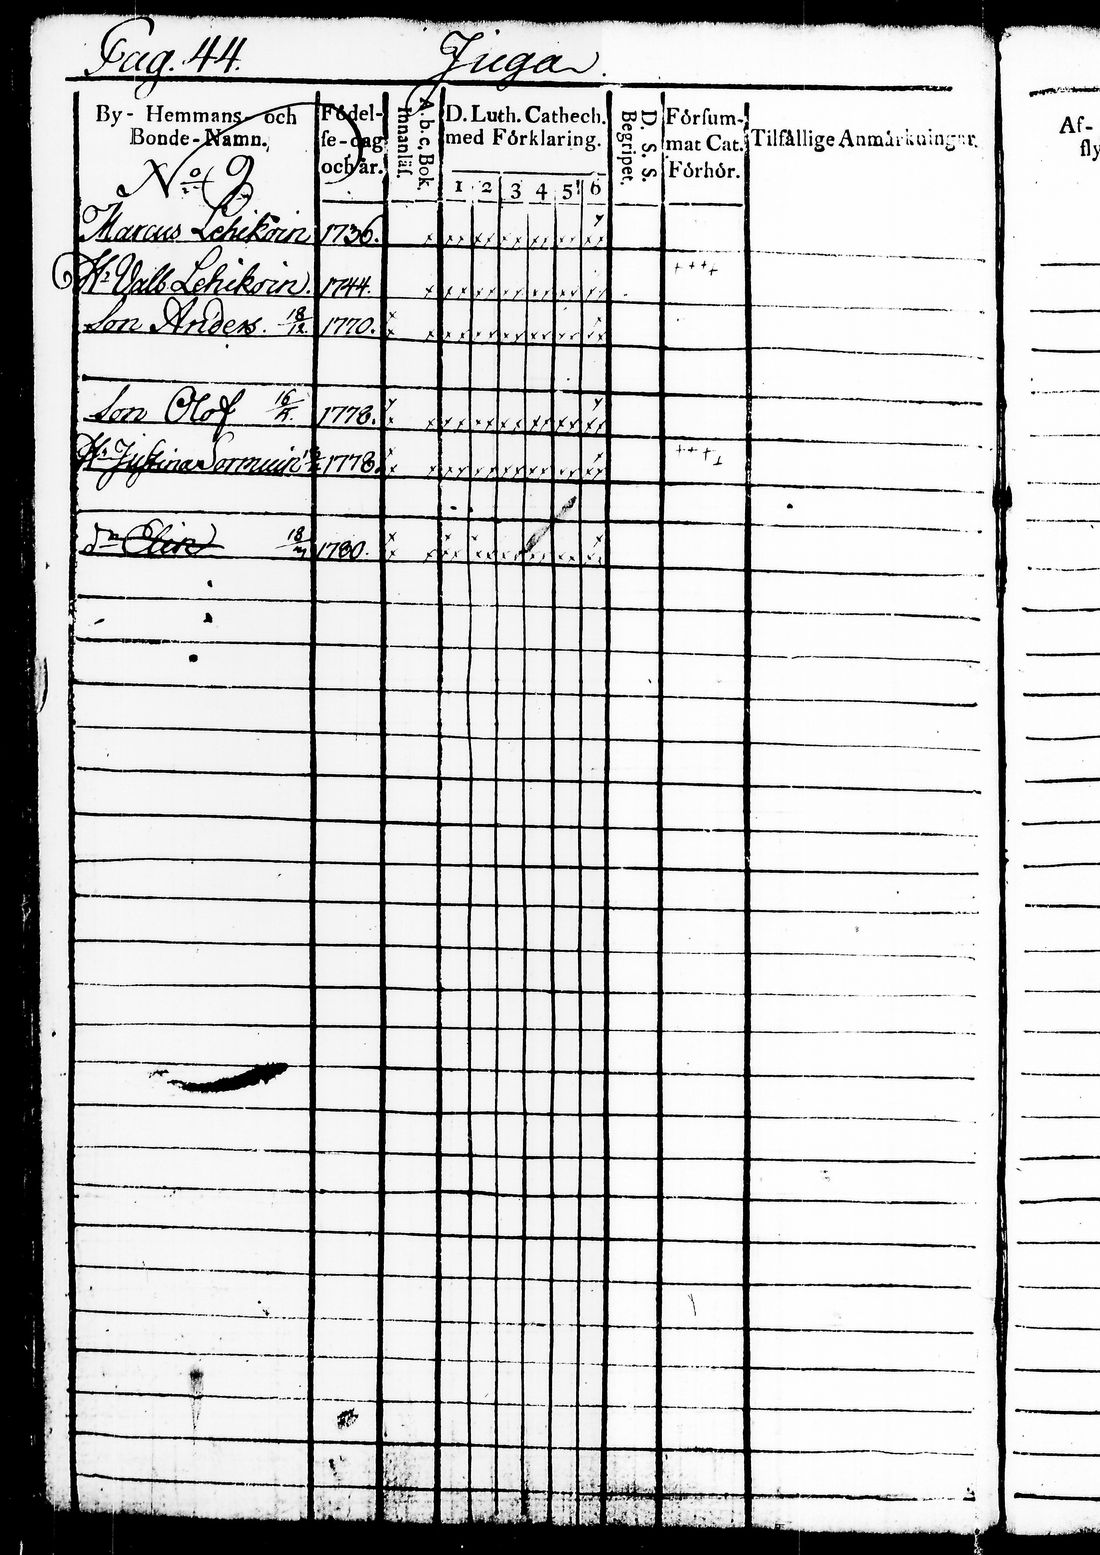 Pag. 44. Juga.
By- Hemmans- och Bonde-Namn.
Födel-se-dag och år.
A.b.c. Bok. Innanläs.
D. Luth. Cathech. med Förklaring.
D. S. S. Begripet.
Försum-mat Cat. Förhör.
Tilfällige Anmärkningar.
Af-
fly
1 2 3 4 5 6
No 9
Marcus Lehikoin 1736.
Hu Valb Lehikoin. 1744.
Son Anders. 18/12 1770.
Son Olof 16/ 1778.
Hu Justina Sormuin 1778.
Dr Elin 18/ 1780.